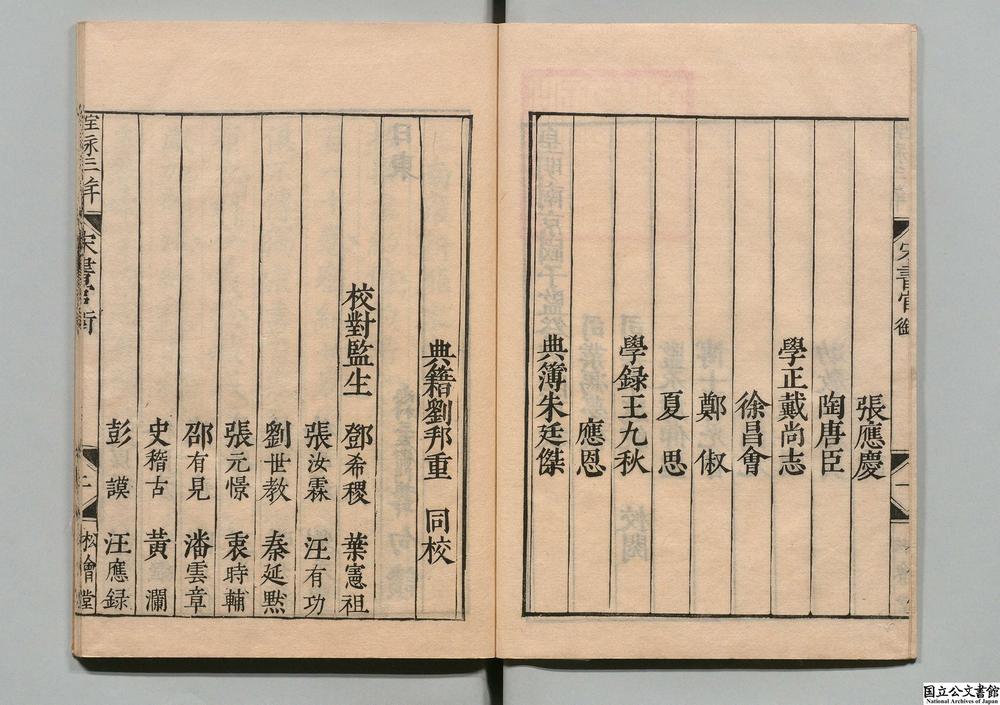 張應慶
陶唐臣
學正戴尚志
徐昌會
鄭俶
夏思
學録王九秋
應恩
典簿朱廷傑
典籍劉邦重 同校
校對監生 鄧希稷 葉憲祖
張汝霖 汪有功
劉世教 秦延黙
張元憬 袠時輔
邵有見 潘雲章
史稽古 黄瀾
彭謨 汪應録
宋書官銜
二
松會堂
宋書官銜
一
国立公文書館
National Archives of Japan